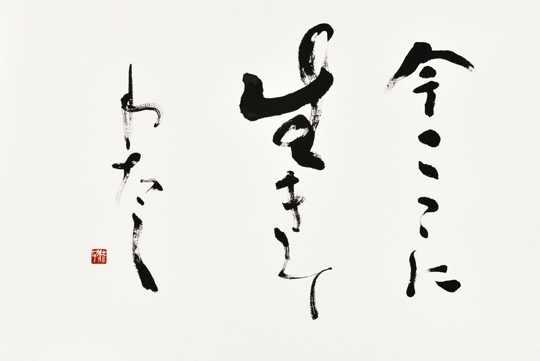 今ここに
生き
わたし